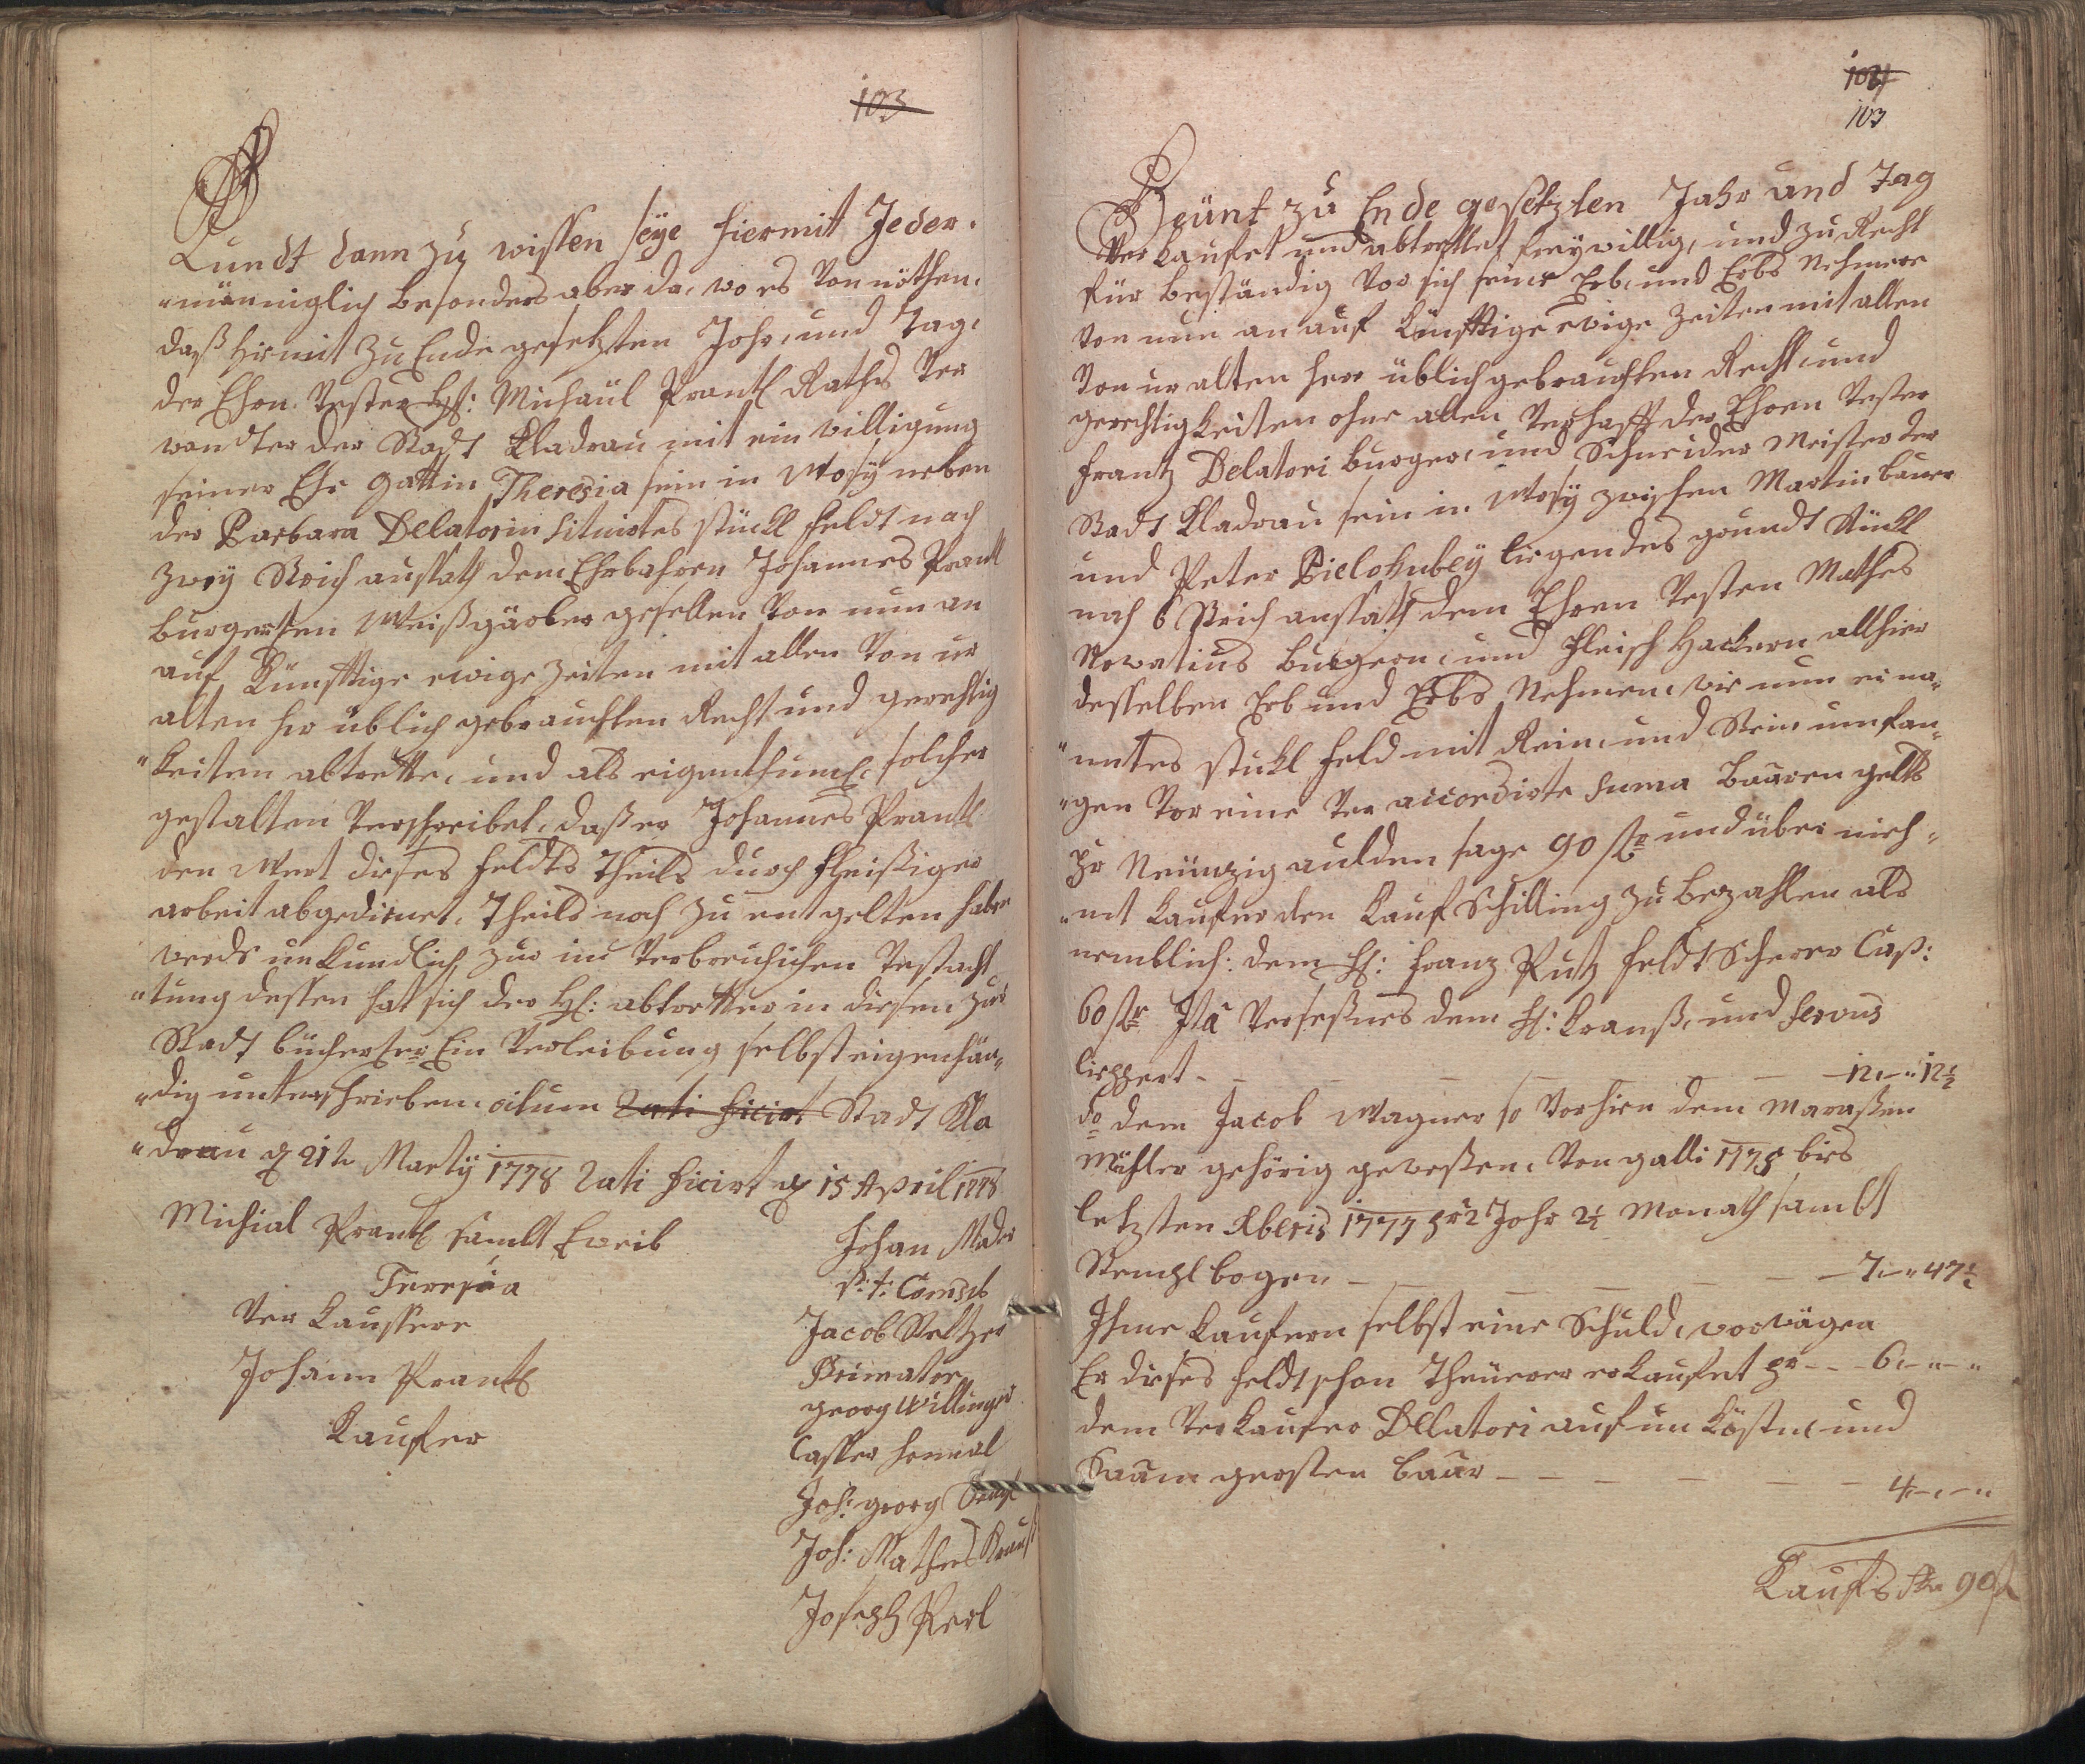 103
Kundt dann zu wissen seÿe hiermit Jeder-
"männiglich besonders aber da, wo es Von nöthen,
daß hir mit Zu Ende gesetzten Jahr, und Tag,
der Ehrn Vester H: Michaül Prantl Raths Ver
wandter der Stadt Kladrau mit ein villigung
seiner Ehe Gattin Theresia sein in Mosÿ neben
der Barbara Delatorin situirtes stückl feldt nach
zweÿ Strich aussath dem Ehrbahren Johannes Prantl
burgerhen Weißgärber gesellen Von nun an
auf Künfftige ewige Zeiten mit allen Von ur
alten her üblich gebrauchten Recht und gerechtig
"keiten abtrette, und als eigenthuml: solcher
gestalten Verschreibet, daß er Johannes Prantl
den Wert dieses feldts Theils durch fleißiger
arbeit abgedienet, Theils noch zu entgelten haben
werde unkundlich zur
"tung dessen hat sich der H: abtretter in diesen zur
Stadt bücher Ein Verleibung selbst eigenhän-
"dig unterschrieben. actum Rati ficirt Stadt Kla
"drau d 21te Martÿ 1778 Rati ficirt d 15 April 1778
Michial Prantl sambt Eweib
Teresia
Ver Kauffere
Johann Prantl
Kaufer
Johan Mader
p: t: Consul
Jacob Steltzer
Primator
georg Willinger
Casper
Joh: georg
Joh: Mathes Kraus
Joseph Perl
104
103
Heünt zu Ende gesetzten Jahr und Tag
Ver Kaufet und abtrettet freÿwillig, und zu Recht
für beständig Vor sich seine Erb, und Erbs Nehmere
Von nun an auf Künfftige ewige Zeiten mit allen
Von ur alten herr üblich gebrauchten Recht, und
gerechtigkeiten ohne allen Verhafft der Ehren Vester
Frantz Delatori burger, und Schneider Meister der
Stadt Kladrau sein in Mosÿ zwischen Martin baurr
und Peter Bielohubeÿ liegendes grundt Stückl
nach 6 Strich aussath dem Ehren Vesten Mathes
Novatius burgern, und Fleisch Hackern allhier
desselben Erb und Erbs Nehmen, wie nun ei na-
"ntes stukl feld mit Rein, und Stein umfan-
"gen Vor eine Ver accordirte Suma Baaren gelts
pr Neünzig gulden sage 90 fl und über nich-
"mt Kaufer den Kauf Schilling zu bezahlen als
nemblich: dem H: Franz Rutz feldt Scherer Cap:
60 fl Ita Versessnes dem H: Krauß, und Servus
lippert - - - - - - 12 -" 12½
do dem Jacob Wagner so Vorhien dem Maraßen
Mühler gehörig gewesen, Von galli 1775 bies
letzten Xberis 1777 pr 2 Johr 2½ Monath sambt
Stempl bogen - - - - - 7 -" 47½
Ihme Kaufern selbst eine Schuld, vorwägen
Er dieses feldt schon Theürer erkaufet pr - - 6 -"-"
dem Verkaufer Dellatori auf un Kösten, und
baar - - - - - 4 -"-"
Kaufs 90 fl